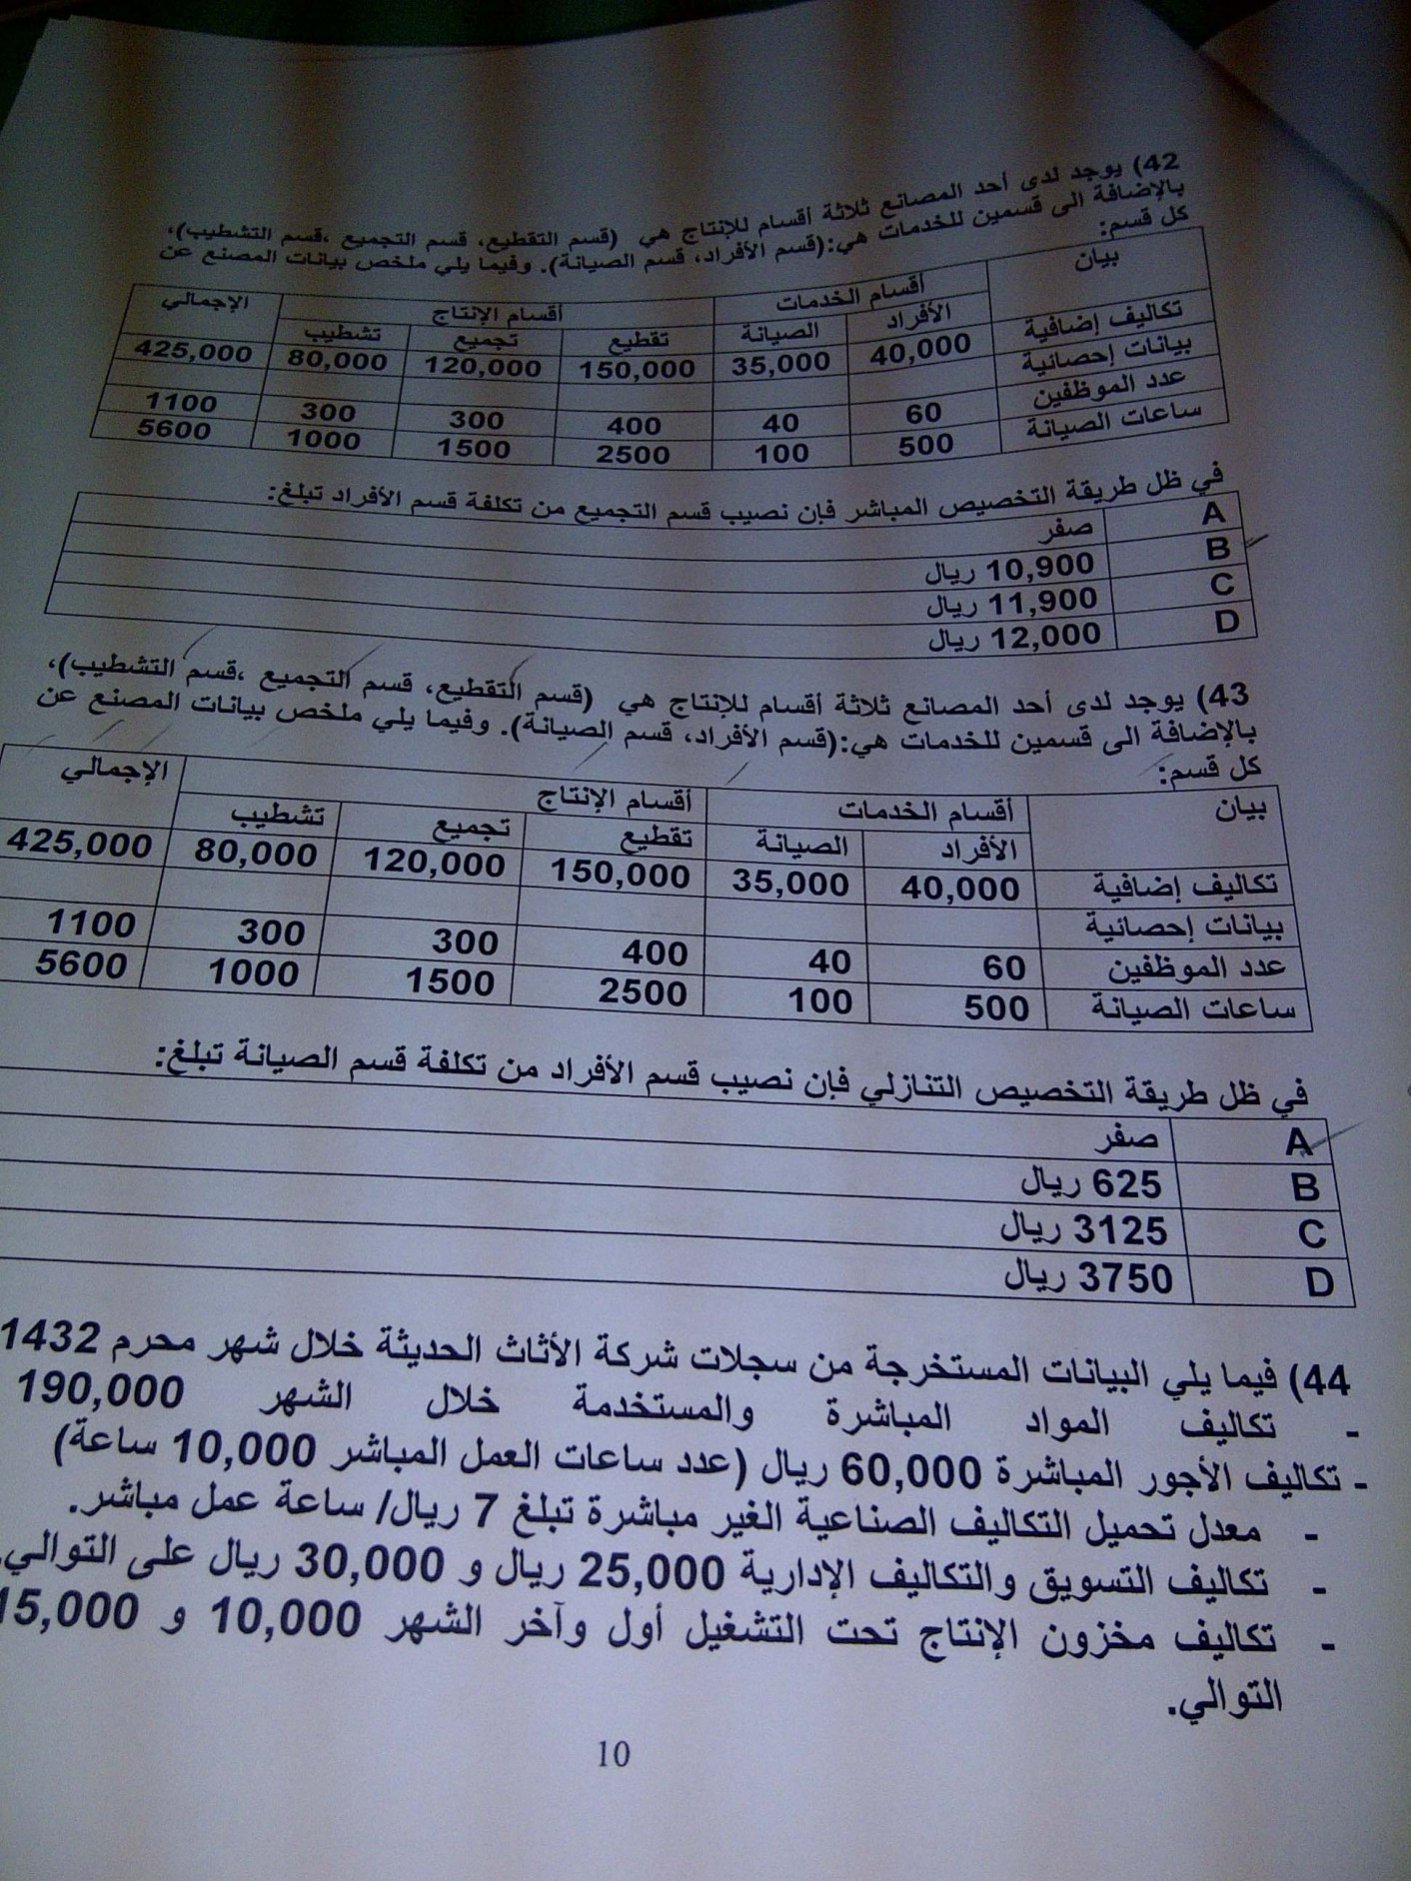 42) يوجد لدى أحد المصانع ثلاثة أقسام للإنتاج هي (قسم التقطيع، قسم التجميع ،قسم التشطيب)،
بالإضافة الى قسمين للخدمات هي:(قسم الأفراد، قسم الصيانة). وفيما يلي ملخص بيانات المصنع عن
كل قسم:
بيان أقسام الخدمات أقسام الإنتاج الإجمالي
الأفراد الصيانة تقطيع تجميع تشطيب
تكاليف إضافية 40,000 35,000 150,000 120,000 80,000 425,000
بيانات إحصائية
عدد الموظفين 60 40 400 300 300 1100
ساعات الصيانة 500 100 2500 1500 1000 5600
في ظل طريقة التخصيص المباشر فإن نصيب قسم التجميع من تكلفة قسم الأفراد تبلغ:
A صفر
B 10,900 ريال
C 11,900 ريال
D 12,000 ريال
43) يوجد لدى أحد المصانع ثلاثة أقسام للإنتاج هي (قسم التقطيع، قسم التجميع ،قسم التشطيب)،
بالإضافة الى قسمين للخدمات هي:(قسم الأفراد، قسم الصيانة). وفيما يلي ملخص بيانات المصنع عن
كل قسم:
بيان أقسام الخدمات أقسام الإنتاج الإجمالي
الأفراد الصيانة تقطيع تجميع تشطيب
تكاليف إضافية 40,000 35,000 150,000 120,000 80,000 425,000
بيانات إحصائية
عدد الموظفين 60 40 400 300 300 1100
ساعات الصيانة 500 100 2500 1500 1000 5600
في ظل طريقة التخصيص التنازلي فإن نصيب قسم الأفراد من تكلفة قسم الصيانة تبلغ:
A صفر
B 625 ريال
C 3125 ريال
D 3750 ريال
44) فيما يلي البيانات المستخرجة من سجلات شركة الأثاث الحديثة خلال شهر محرم 1432
- تكاليف المواد المباشرة والمستخدمة خلال الشهر 190,000
- تكاليف الأجور المباشرة 60,000 ريال (عدد ساعات العمل المباشر 10,000 ساعة)
- معدل تحميل التكاليف الصناعية الغير مباشرة تبلغ 7 ريال/ ساعة عمل مباشر.
- تكاليف التسويق والتكاليف الإدارية 25,000 ريال و 30,000 ريال على التوالي.
- تكاليف مخزون الإنتاج تحت التشغيل أول وآخر الشهر 10,000 و 15,000
التوالي.
10